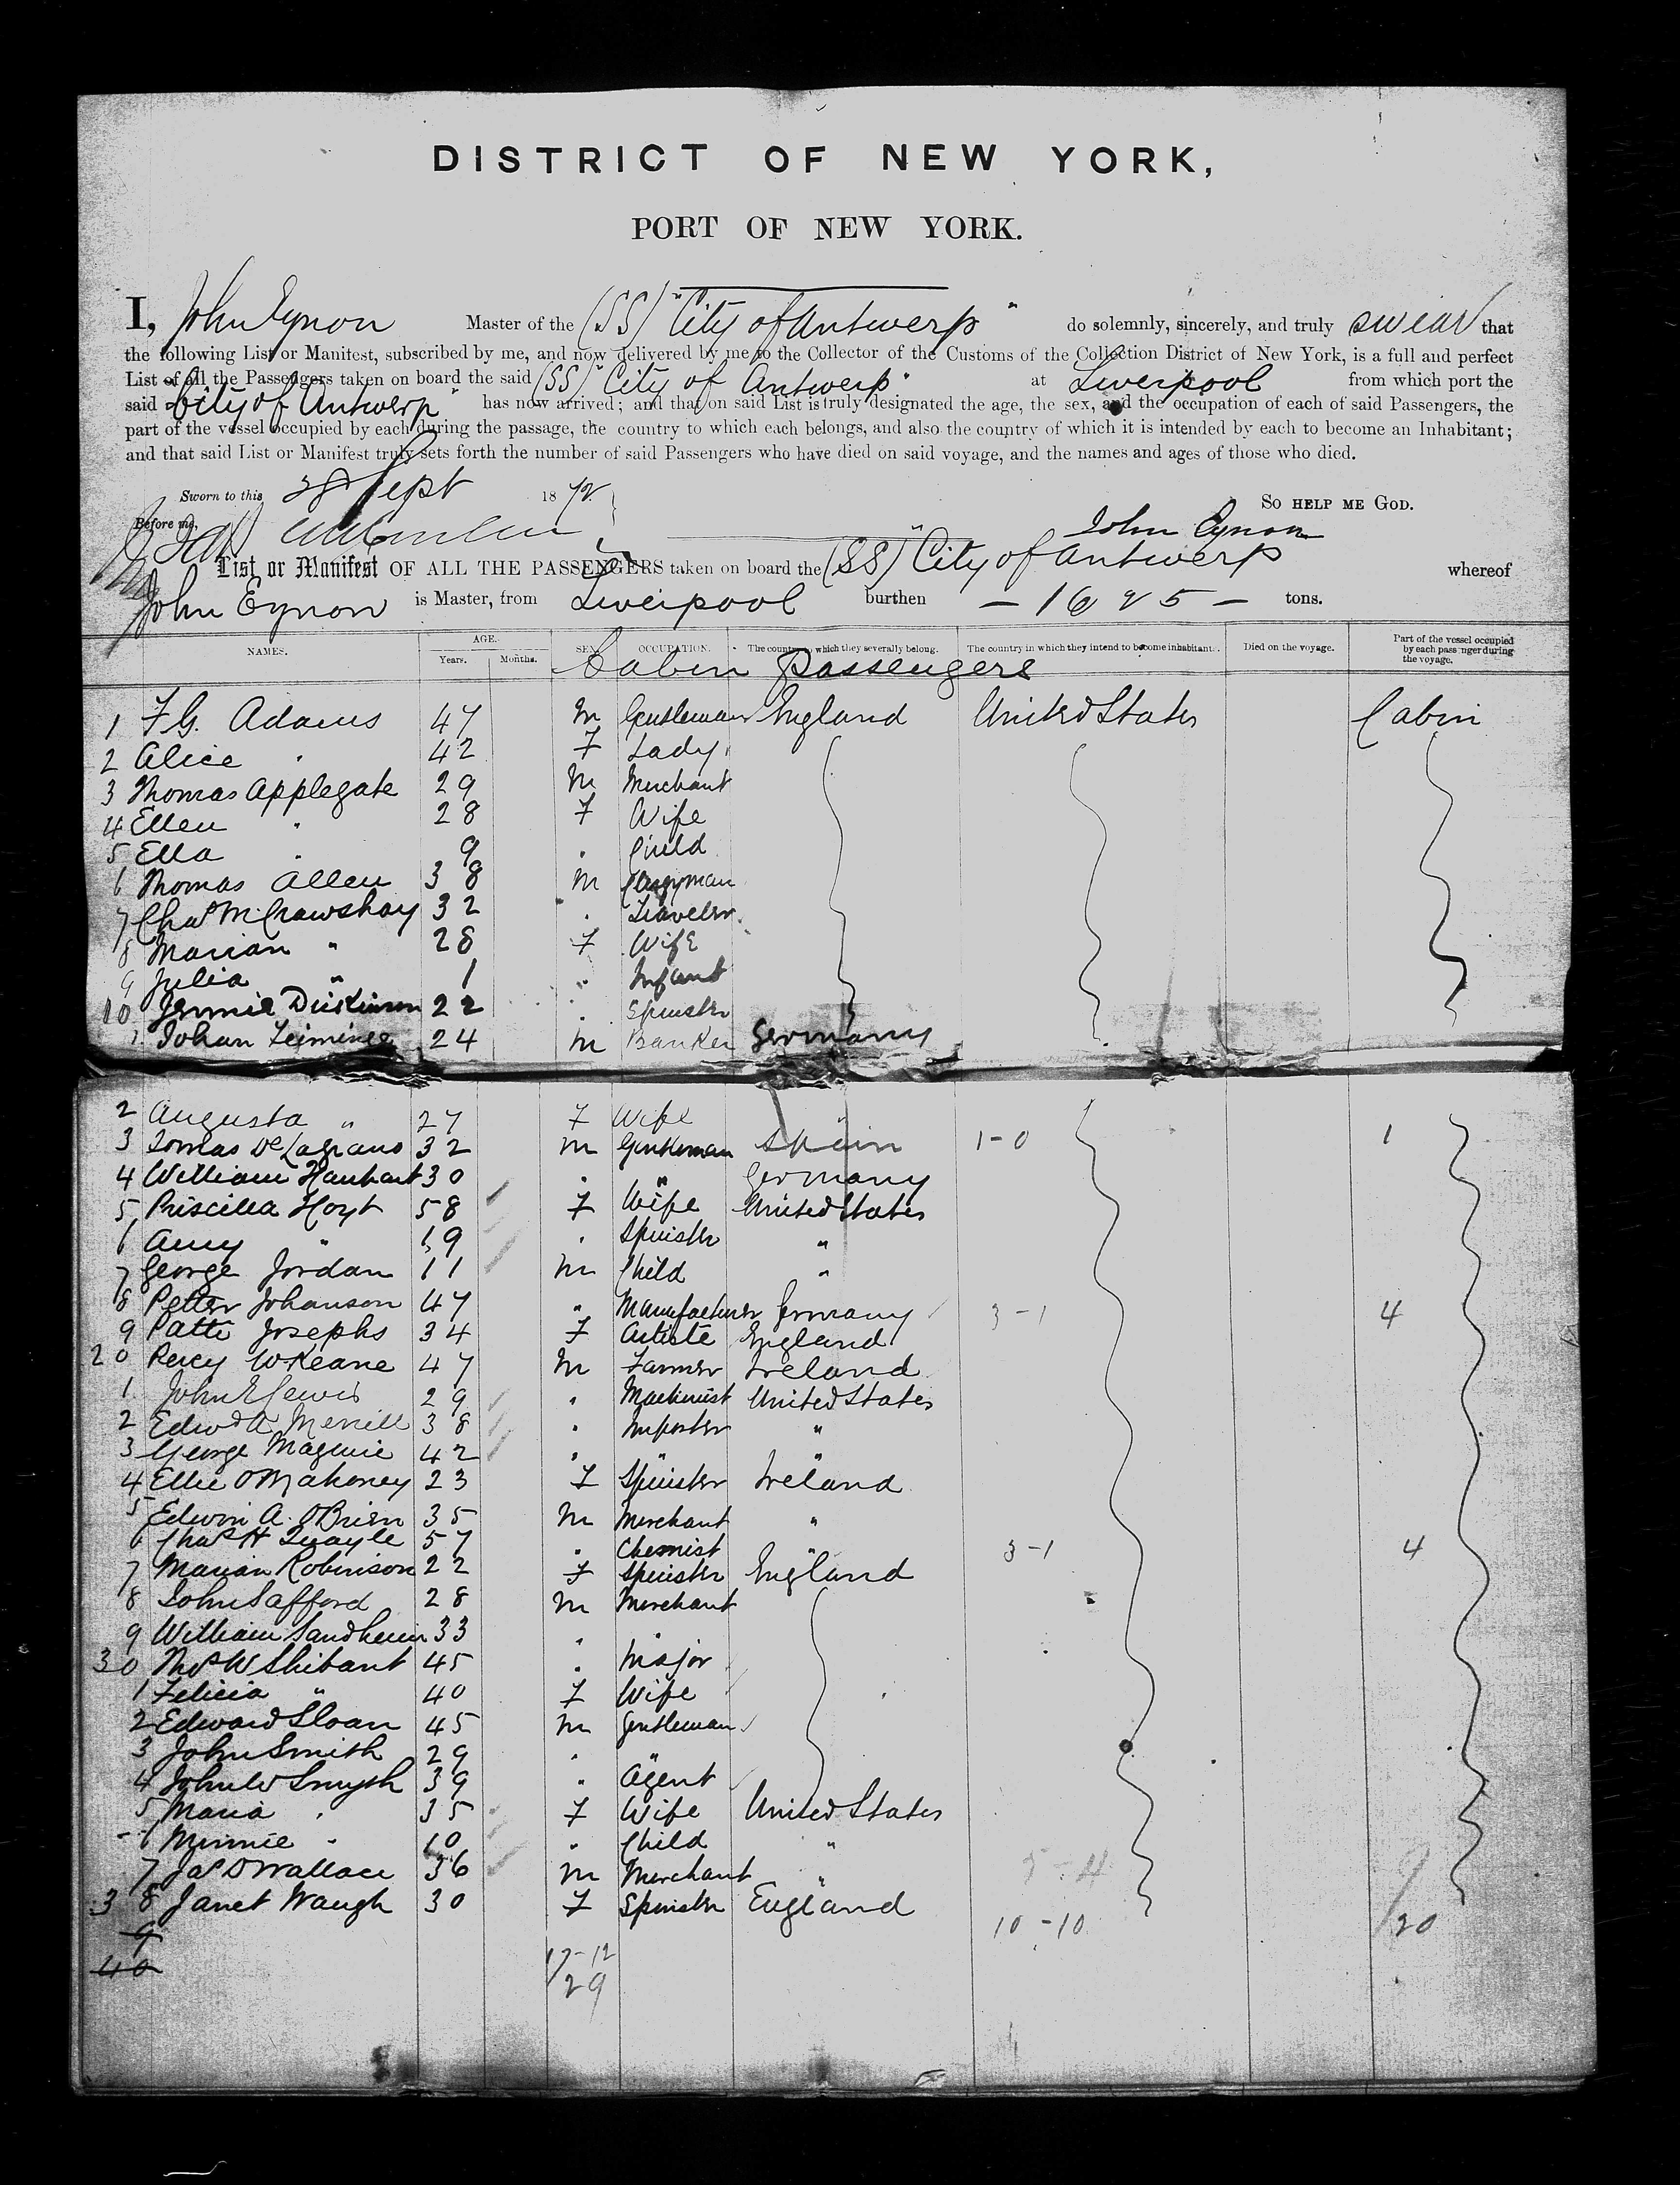 DISTRICT OF NEW YORK,
PORT OF NEW YORK.
I, John Eynon Master of the (SS) "City of Antwerp" do solemnly, sincerely, and truly swear that
the following List or Manifest, subscribed by me, and now delivered by me to the Collector of the Customs of the Collection District of New York, is a full and perfect
List of all the Passengers taken on board the said (SS) "City of Antwerp" at Liverpool from which port the
said City of Antwerp" has now arrived; and that on said List is truly designated the age, the sex, and the occupation of each of said Passengers, the
part of the vessel occupied by each during the passage, the country to which each belongs, and also the country of which it is intended by each to become an Inhabitant;
and that said List or Manifest truly sets forth the number of said Passengers who have died on said voyage, and the names and ages of those who died.
Sworn to this 28 Sept 1872
So HELP ME GOD.
Before me,
John Eynon
List or Manifest OF ALL THE PASSENGERS taken on board the (SS) "City of Antwerp whereof
John Eynon is Master, from Liverpool burthen - 1625 - tons.
NAMES. AGE. Years. Months. SEX. OCCUPATION. The country to which they severally belong. The country in which they intend to become inhabitants. Died on the voyage. Part of the vessel occupied by each passenger during the voyage.
Cabin Passengers
1 F.G. Adams 47 M Gentleman England United States Cabin
2 Alice " 42 F Lady
3 Thomas Applegate 29 M Merchant
4 Ellen " 28 F Wife
5 Ella " 9 " Child
6 Thomas Allen 38 M Clergyman
7 Chas M. Crawshay 32 " Traveler
8 Marian " 28 F Wife
9 Julia " 1 " Infant
10 Jennie Dickinson 22 " Spinster
1 Johan 24 M Banker Germany
2 Augusta " 27 F Wife "
3 Tomas De 32 M Gentleman Spain 1-0 1
4 William Hanhart 30 " " Germany
5 Priscilla Hoyt 58 F Wife United States
6 Amy " 19 " Spinster "
7 George Jordan 11 M Child "
8 Petter Johanson 47 " Manufacturer Germany 3-1 4
9 Patti Josephs 34 F Artiste England
20 Percy W Keane 47 M Farmer Ireland
1 John E Lewis 29 " Machinist United States
2 Edwd A Merrill 38 " Importer "
3 George Maguire 42 " " "
4 Ellie O Mahoney 23 F Spinster Ireland
5 Edwin A. OBrien 35 M Merchant "
6 Chas H Quayle 57 " Chemist " 3-1 4
7 Marian Robinson 22 F Spinster England
8 John Safford 28 M Merchant
9 William Sandheim 33 " "
30 Thos W Shibant 45 " Major
1 Felicia " 40 F Wife
2 Edward Sloan 45 M Gentleman
3 John Smith 29 " "
4 John W Smyth 39 " Agent
5 Maria " 35 F Wife United States
6 Minnie " 10 " Child "
7 Jas D Wallace 36 M Merchant " 3-4 7
38 Janet Waugh 30 F Spinster England
9 10-10 20
40 17-12
29